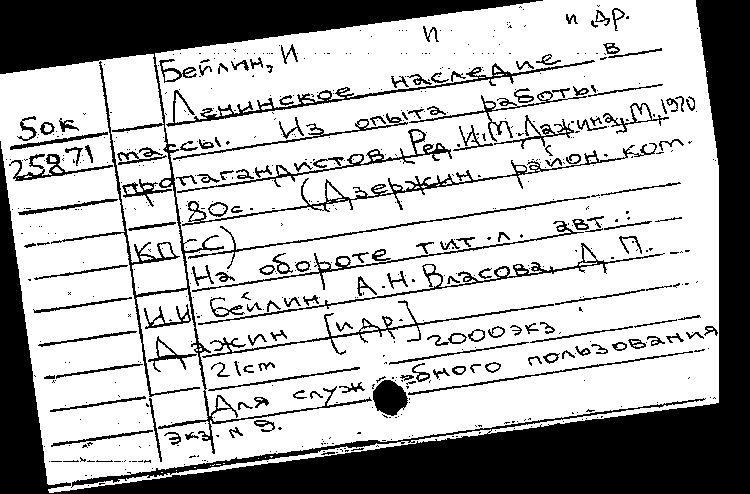 Бейлин, И П и др.
Ленинское наследие в
50к массы. Из опыта работы
25871 пропагандистов. Ред. И.М. Дажина, М., 1970
80с. (Дзержин. район. ком.
КПСС)
На обороте тит.л. авт.:
И.И. Бейлин, А.Н. Власова, Д.П.
Дажин [и др.]
21cm 2000экз.
Для служебного пользования
экз. н 9.